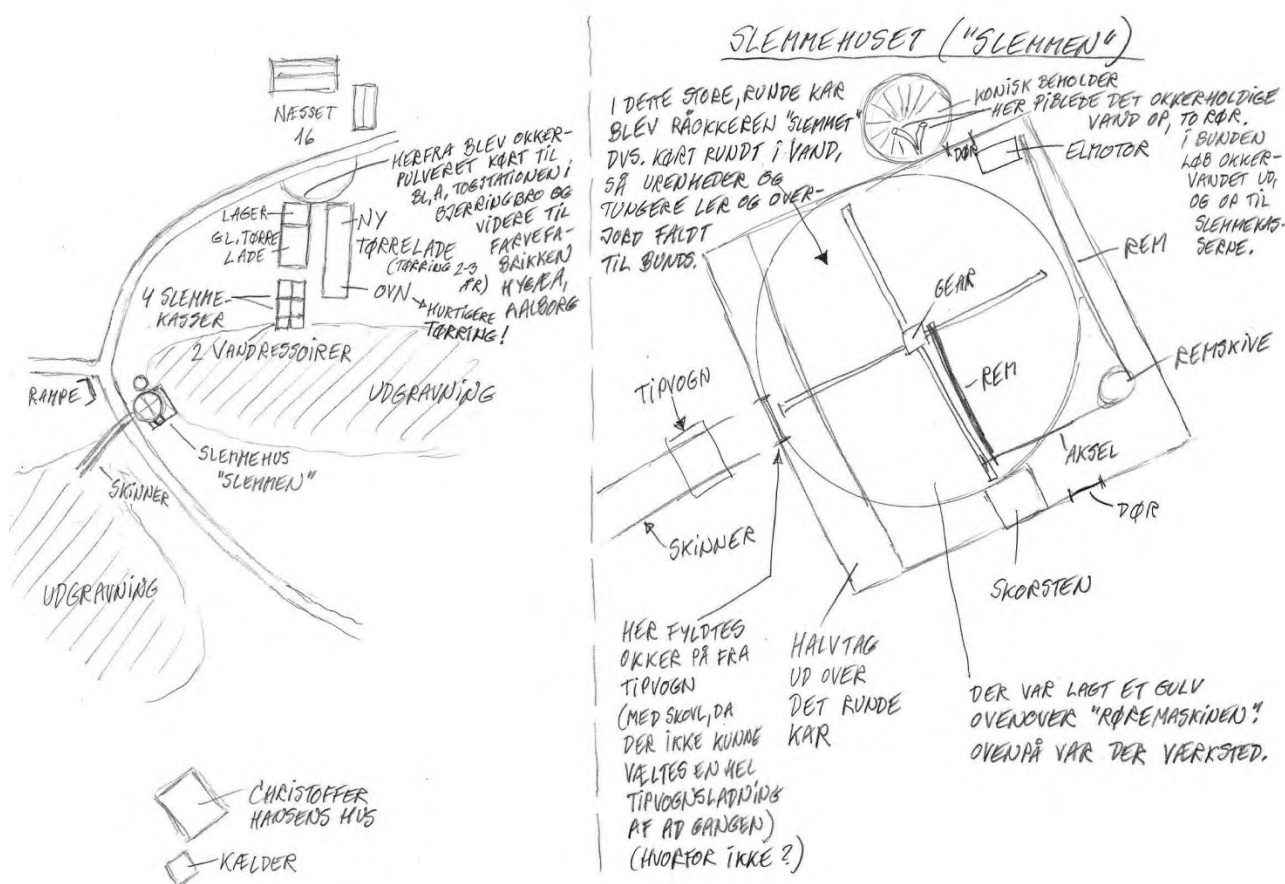 NÆSSET
16
HERFRA BLEV OKKER-
PULVERET KØRT TIL
BL.A. TOGSTATIONEN I
BJERRINGBRO OG
VIDERE TIL
FARVEFA-
BRIKKEN
HYGÆA,
AALBORG
LAGER
GL. TØRRE
LADE
NY
TØRRELADE
(TØRRING 2-3
ÅR)
OVN
HURTIGERE
TØRRING!
4 SLEMME-
KASSER
2 VANDRESSOIRER
UDGRAVNING
RAMPE
SLEMMEHUS
"SLEMMEN"
SKINNER
UDGRAVNING
CHRISTOFFER
HANSENS HUS
KÆLDER
SLEMMEHUSET ("SLEMMEN")
I DETTE STORE, RUNDE KAR
BLEV RÅOKKEREN "SLEMMET"
DVS. KØRT RUNDT I VAND,
SÅ URENHEDER OG
TUNGERE LER OG OVER-
JORD FALDT
TIL BUNDS.
KONISK BEHOLDER
HER PIBLEDE DET OKKERHOLDIGE
VAND OP, TO RØR.
I BUNDEN
LØB OKKER-
VANDET UD,
OG OP TIL
SLEMMEKAS-
SERNE.
DØR
ELMOTOR
REM
GEAR
REM
REMSKIVE
TIPVOGN
AKSEL
DØR
SKINNER
SKORSTEN
HER FYLDTES
OKKER PÅ FRA
TIPVOGN
(MED SKOVL, DA
DER IKKE KUNDE
VÆLTES EN HEL
TIPVOGNSLADNING
AF AD GANGEN)
(HVORFOR IKKE?)
HALVTAG
UD OVER
DET RUNDE
KAR
DER VAR LAGT ET GULV
OVENOVER "RØREMASKINEN".
OVENPÅ VAR DER VÆRKSTED.